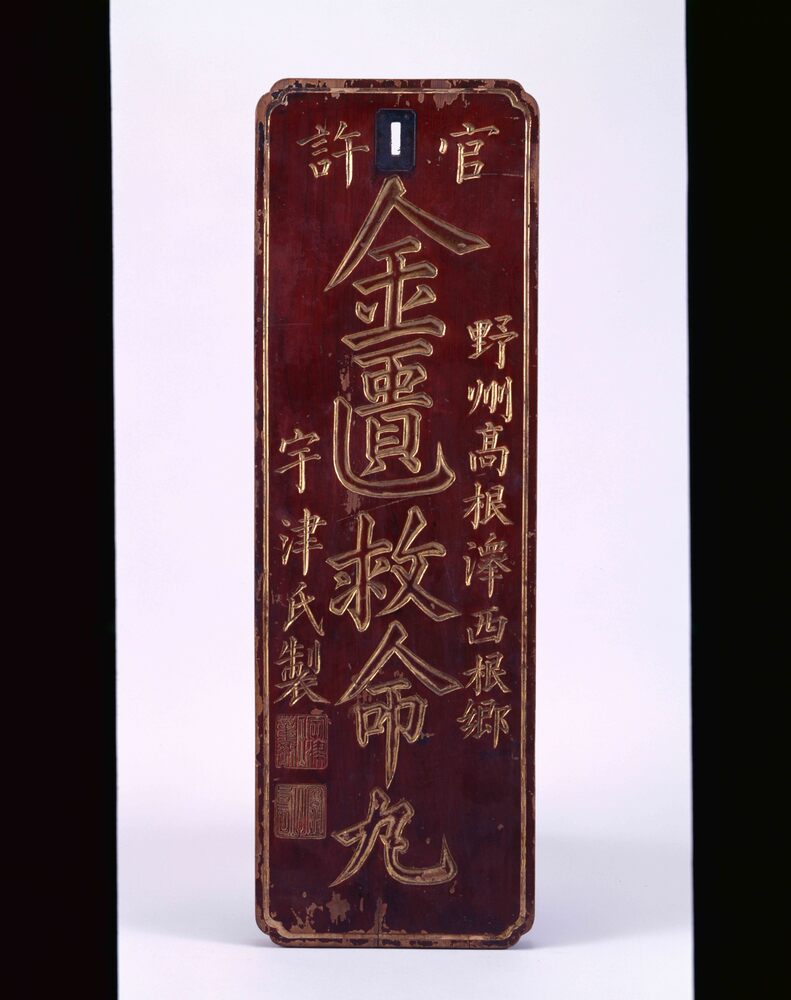 官許
野州高根澤西根郷
金匱救命丸
宇津氏製